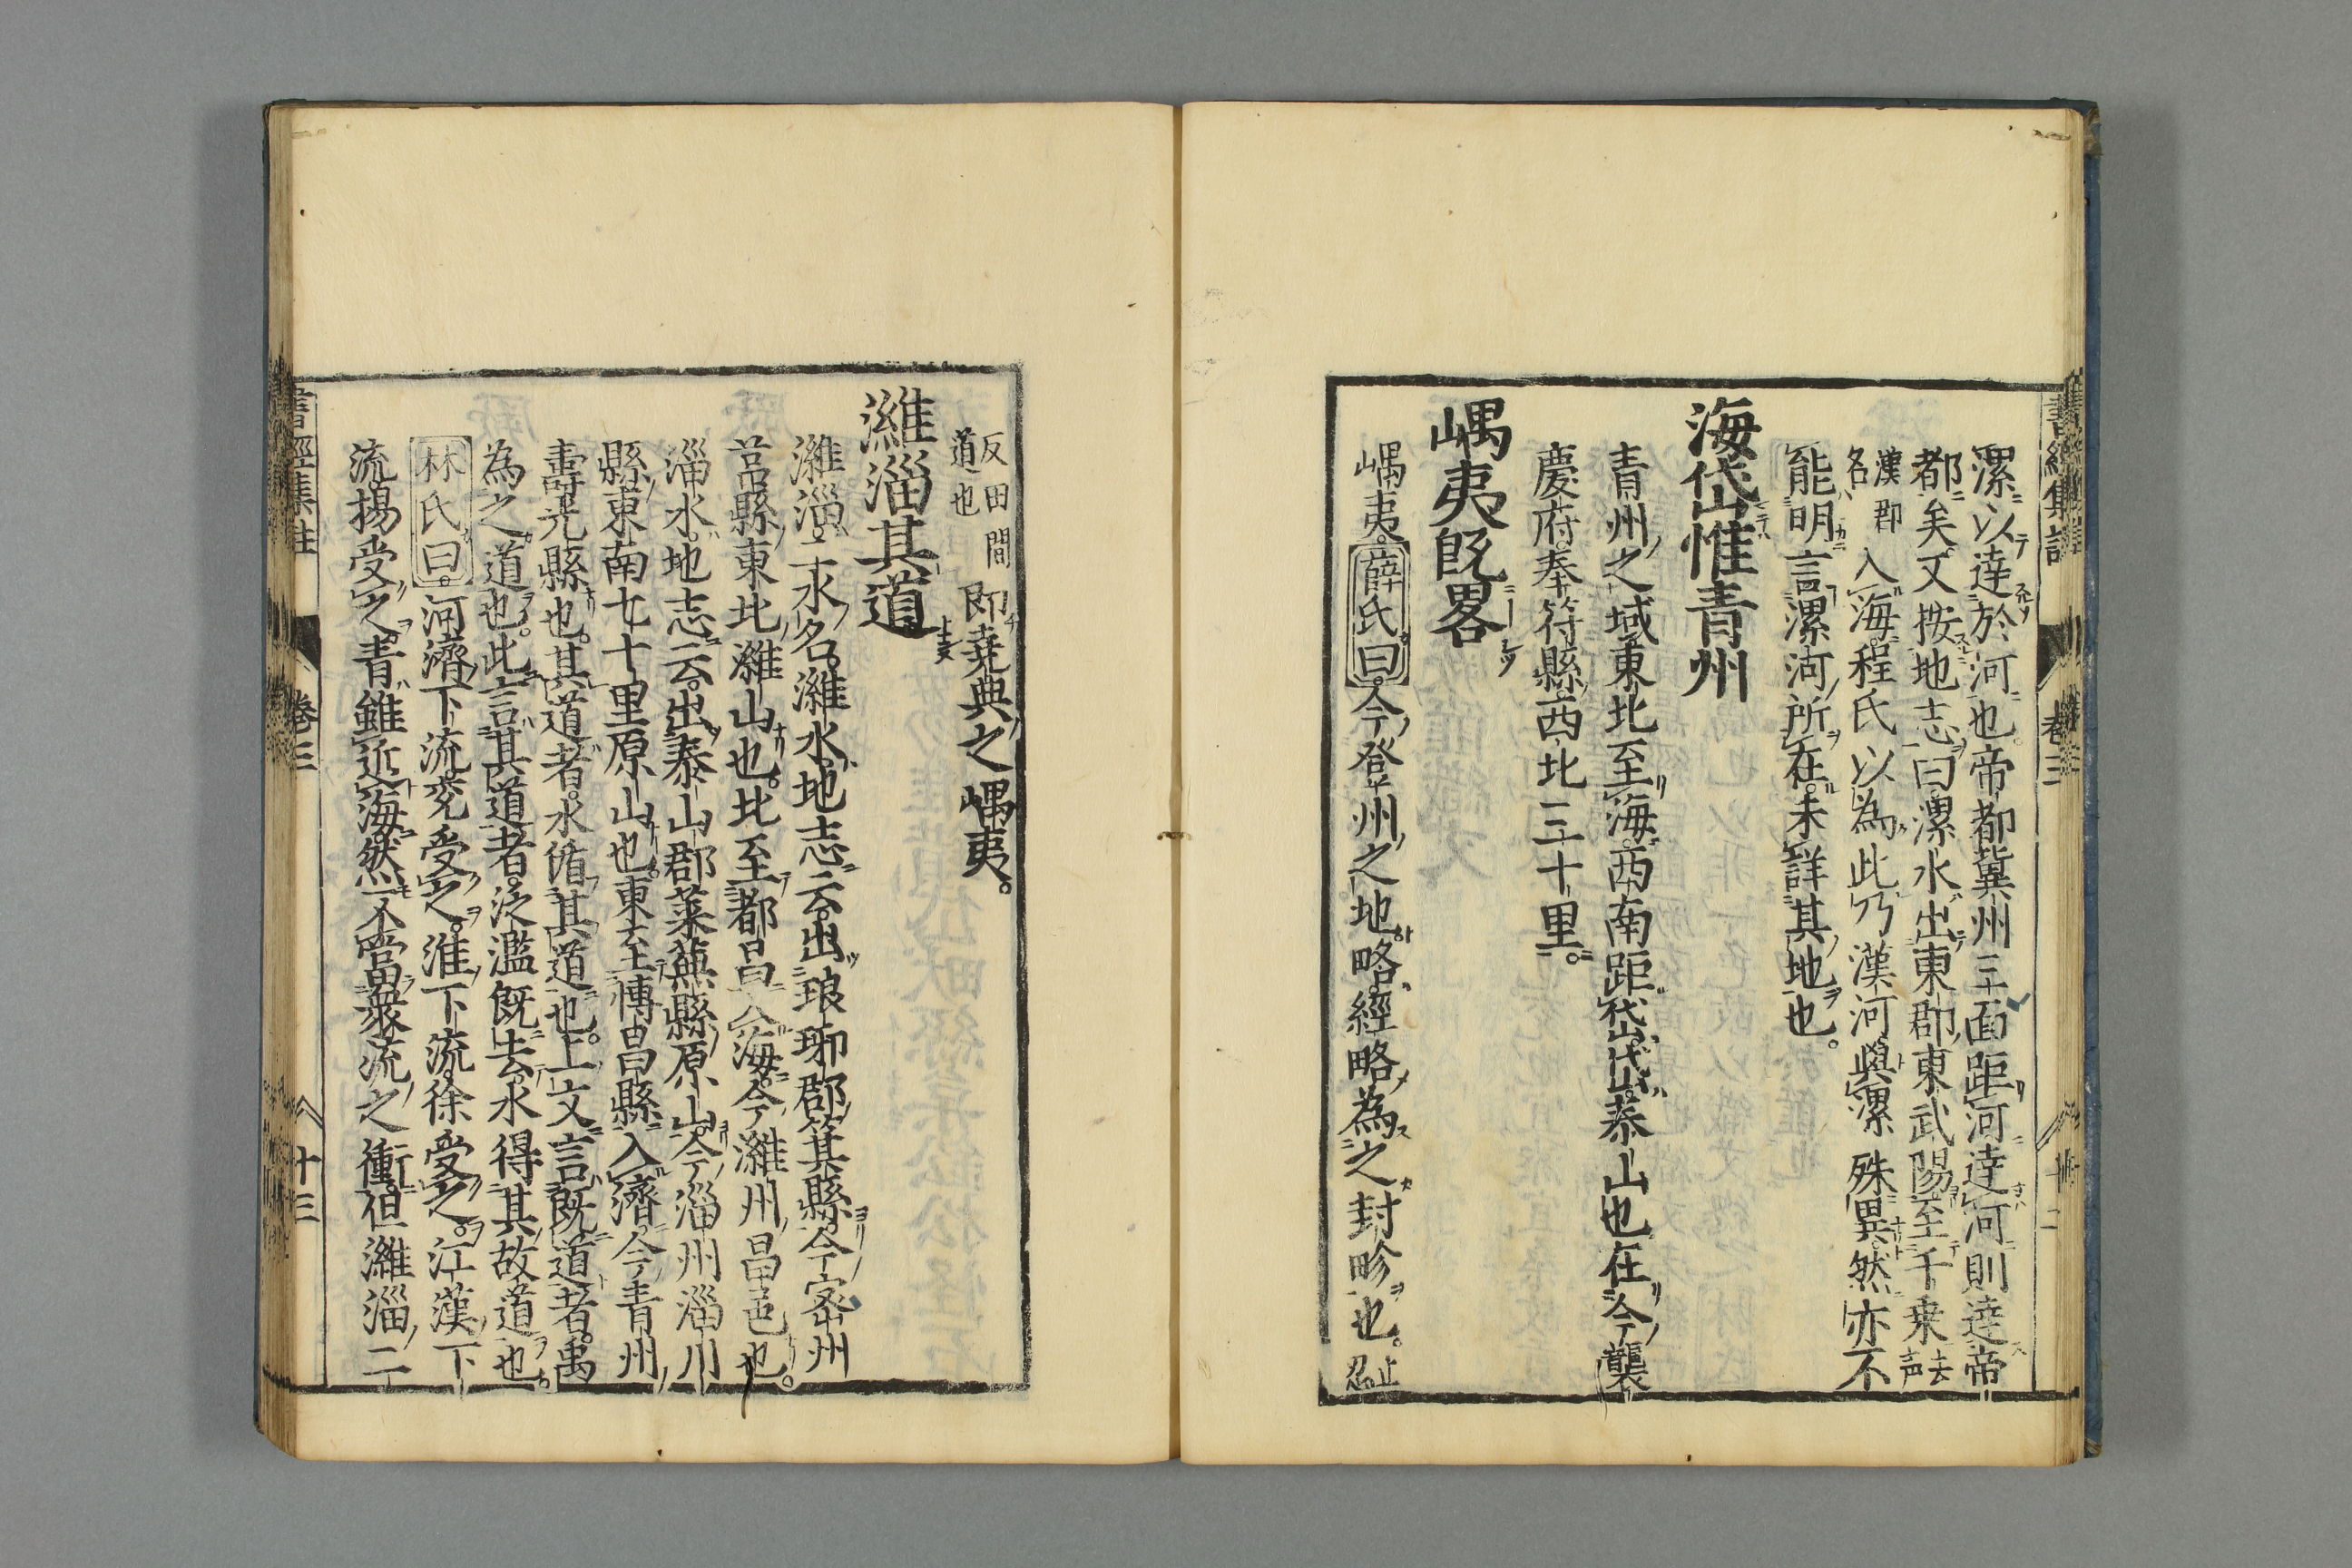 書經集註 卷三 十二
漯以達於河也帝都冀州三面距河達河則達帝
都矣又按地志曰漯水出東郡東武陽至千乗去声
漢郡名入海程氏以為此乃漢河與漯殊異然亦不
能明言漯河所在未詳其地也。
海岱惟青州
青州之域東北至海西南距岱岱泰山也在今襲
慶府奉符縣西北三十里。
嵎夷既畧
嵎夷薛氏曰今登州之地略經略為之封畛也。止忍
反田間道也即堯典之嵎夷。
濰淄其道
濰淄二水名濰水地志云出琅琊郡箕縣今宻州
莒縣東北濰山也。北至都昌入海今濰州昌邑也。
淄水地志云出泰山郡萊蕪縣原山今淄州淄川
縣東南七十里原山也。東至博昌縣入濟今青州
壽光縣也。其道者水循其道也。上文言既道者禹
為之道也。此言其道者泛濫既去水得其故道也。
林氏曰。河濟下流兖受之。淮下流徐受之。江漢下
流揚受之。青雖近海然不當衆流之衝但濰淄二
書經集註 卷三 十三